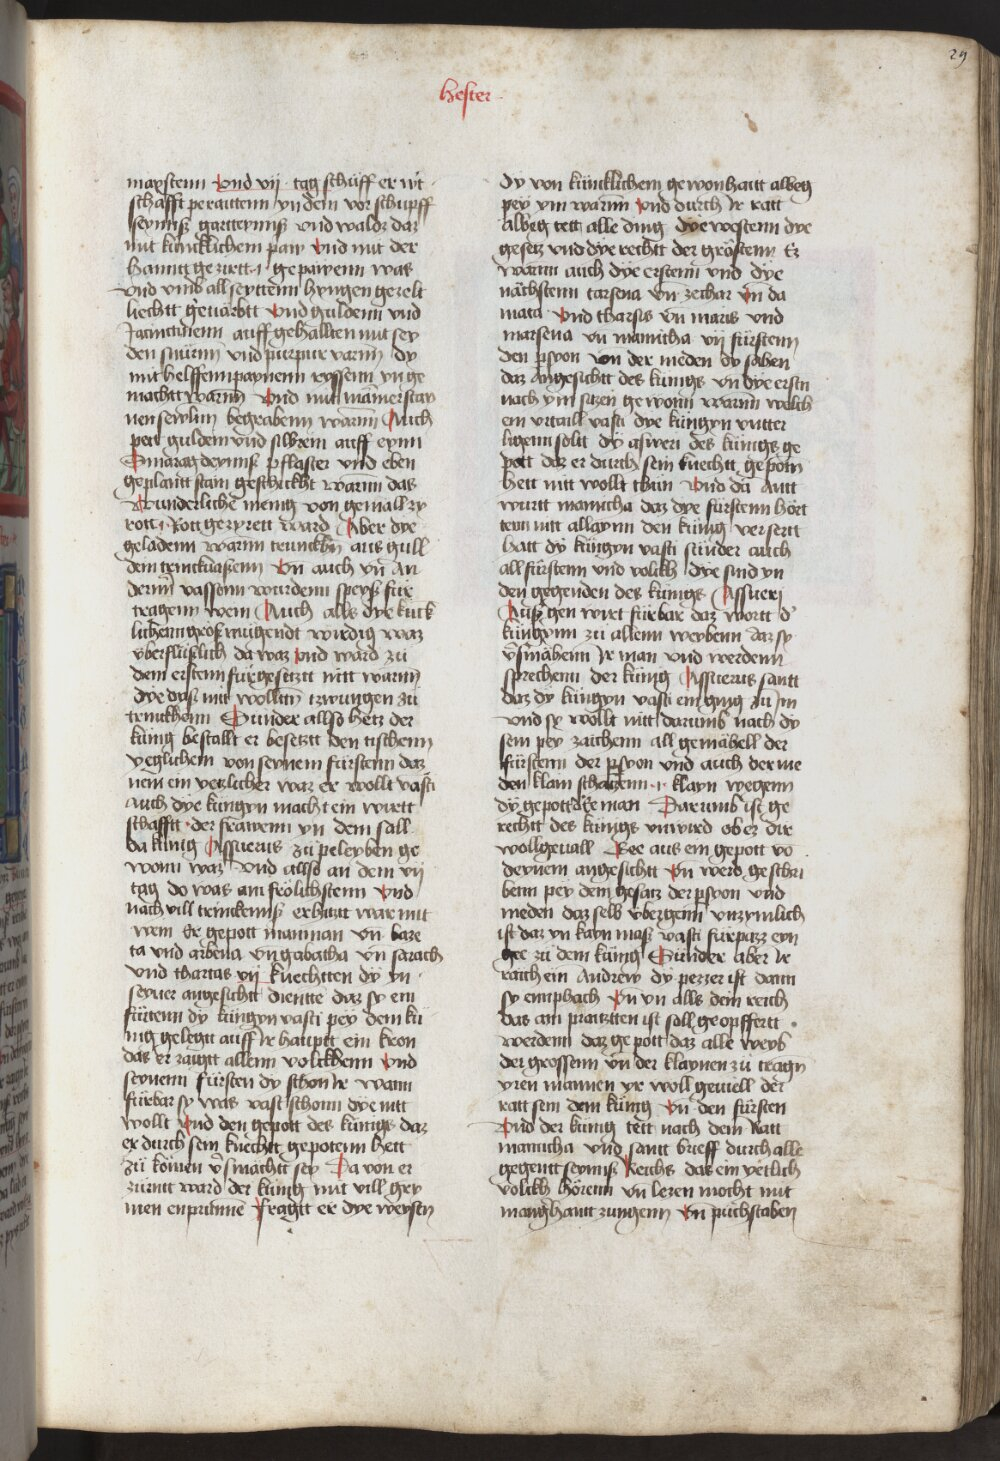 29
hester
maystenn vnd vij · tag schüff er wt
schafft peraittenn yn dem vor schupff
seynniß garrteynniß vnd waldz daz
mit künicklichem paw Vnd mit der
hannt gezirett · gepawenn was
vnd vmb all seyttenn hyngen gezelt
liechtt geuarbtt Vnd guldenn vnd
Jacinctinenn auff gehallten mit sey
den snürnn vnd purpur varnn dy
mit helffennpaynenn ryssenn yn ge
machtt warnn Vnd mit mámerstay
nen sewlnn begrabenn warnn Auch
pett guldein vnd silbrein auff eynn
Smaragdeynniß pflaster vnd eben
geplantt stain geschickht warnn das
Wunderliche menig von gemäll zy
rott · Rott gezyrett ward Aber dye
geladenn warnn trunckhn aus gull
dem trinckuaßenn Vn auch yn An
dernn vassenn wurdenn speyß für
tragenn wein Auch alls dye künk
lichenn großmügendt wirdig waz
vberflüslich da waz vnd ward zü
dem erstenn fürgesetztt nitt warnn
dye daß nitt wolltn zwungen zu
trinckhenn Sunder allso hetz der
künig bestallt er besetztt den tischenn
yeglichem von seynem fürstenn daz
nem ein yeglicher waz er wollt vasti
auch dye küngyn macht ein wirtt
schafftt · der frawenn yn dem sall
da künig Assuerus zü peleyben ge
wonn waz Vnd allso an dem vij
tag do was am frölichstenn Vnd
nach vill trinckenniß erhitztt war mit
wein Er gepott manman vn baze
ta vnd arbena vn gabatha vn sarath
vnd thartas vij knechtten dy yn ·
seyner angesichtt dientte daz sy ein
fürtenn dy küngyn vasti pey dem kü
nig gelegtt auff Ir hauptt ein kron
das er zaigtt allenn volckhenn Vnd
seynenn fürsten dy schon Ir wann
fürbar sy was vast schonn dye nitt
wollt Vnd den gepott des künigs daz
er durch sein knechtt gepotenn hett
zü kömen vsmächtt sey Da von er
zürntt ward der künig mit vill gry
men enprunne Fragtt er dye weysen
dy von künicklichem gewonhaitt albeg
pey ym warnn Vnd durch Ir ratt
albeg tett alle ding dye westenn dye
gesetz vnd dye rechtt der gröstenn Ez
warnn auch dye erstenn vnd dye
nächstenn tarsena vn zechar vn da
mata Vnd tharsis vn maris vnd
marsena vn mamicha vij fürstenn
den psyon von der meden dy sahen
daz angesichtt des künigs vn dye erstn
nach ym sitzen gewonn warnn welch
ein vrtaill vasti dye küngyn vntter
ligenn sollt dy asweri des künigs ge
pott daz er durch sein knechtt gepotn
hett nitt wollt thün Vnd da antt
wurtt mamicha daz dye fürstenn hört
tenn nitt allaynn den künig versertt
hatt dy küngyn vasti sünder auch
all fürstenn vnd volckh dye sind yn
den gegenden des künigs Assueri
Außgen wirt fürbar daz wortt d'
küngynn zu allenn weybenn daz sy
vsmähenn Ir man vnd werdenn
sprechenn der künig Assuerus santt
daz dy küngyn vasti ein ging zü Im
vnd sy wollt nitt darumb nach dy
sem pey zaichenn all gemähell der
fürstenn der psyon vnd auch der me
den klain schatzenn · klayn wegenn
dy gepott der man Darumb ist ge
rechtt des künigs vnwird ob ez dir
wollgeuall Gee aus ein gepott vo
deynem angesichtt Vn werd geschri
benn pey dem gesatz der psyon vnd
meden daz selb vbergenn vnzymlich
ist daz yn kayn maß vasti fürpazz eyn
gee zü dem künig Sünder aber Ir
raich ein Andrew dy pezzer ist dann
sy emphach Vn yn alls dein reich
das am praitztten ist soll geopffertt
werdenn daz gepott daz alle weyb
der grossenn vn der klaynen zü tragn
yren mannen yr woll geuiell der
ratt sein dem künig Vn den fürsten
Vnd der künig tett nach dem Ratt
mamicha vnd santt brieff durch alle
gegentt seyniß Reichs das ein yetlich
volckh hörenn vn lezen mocht mit
manghantt zungenn Vn püchstaben